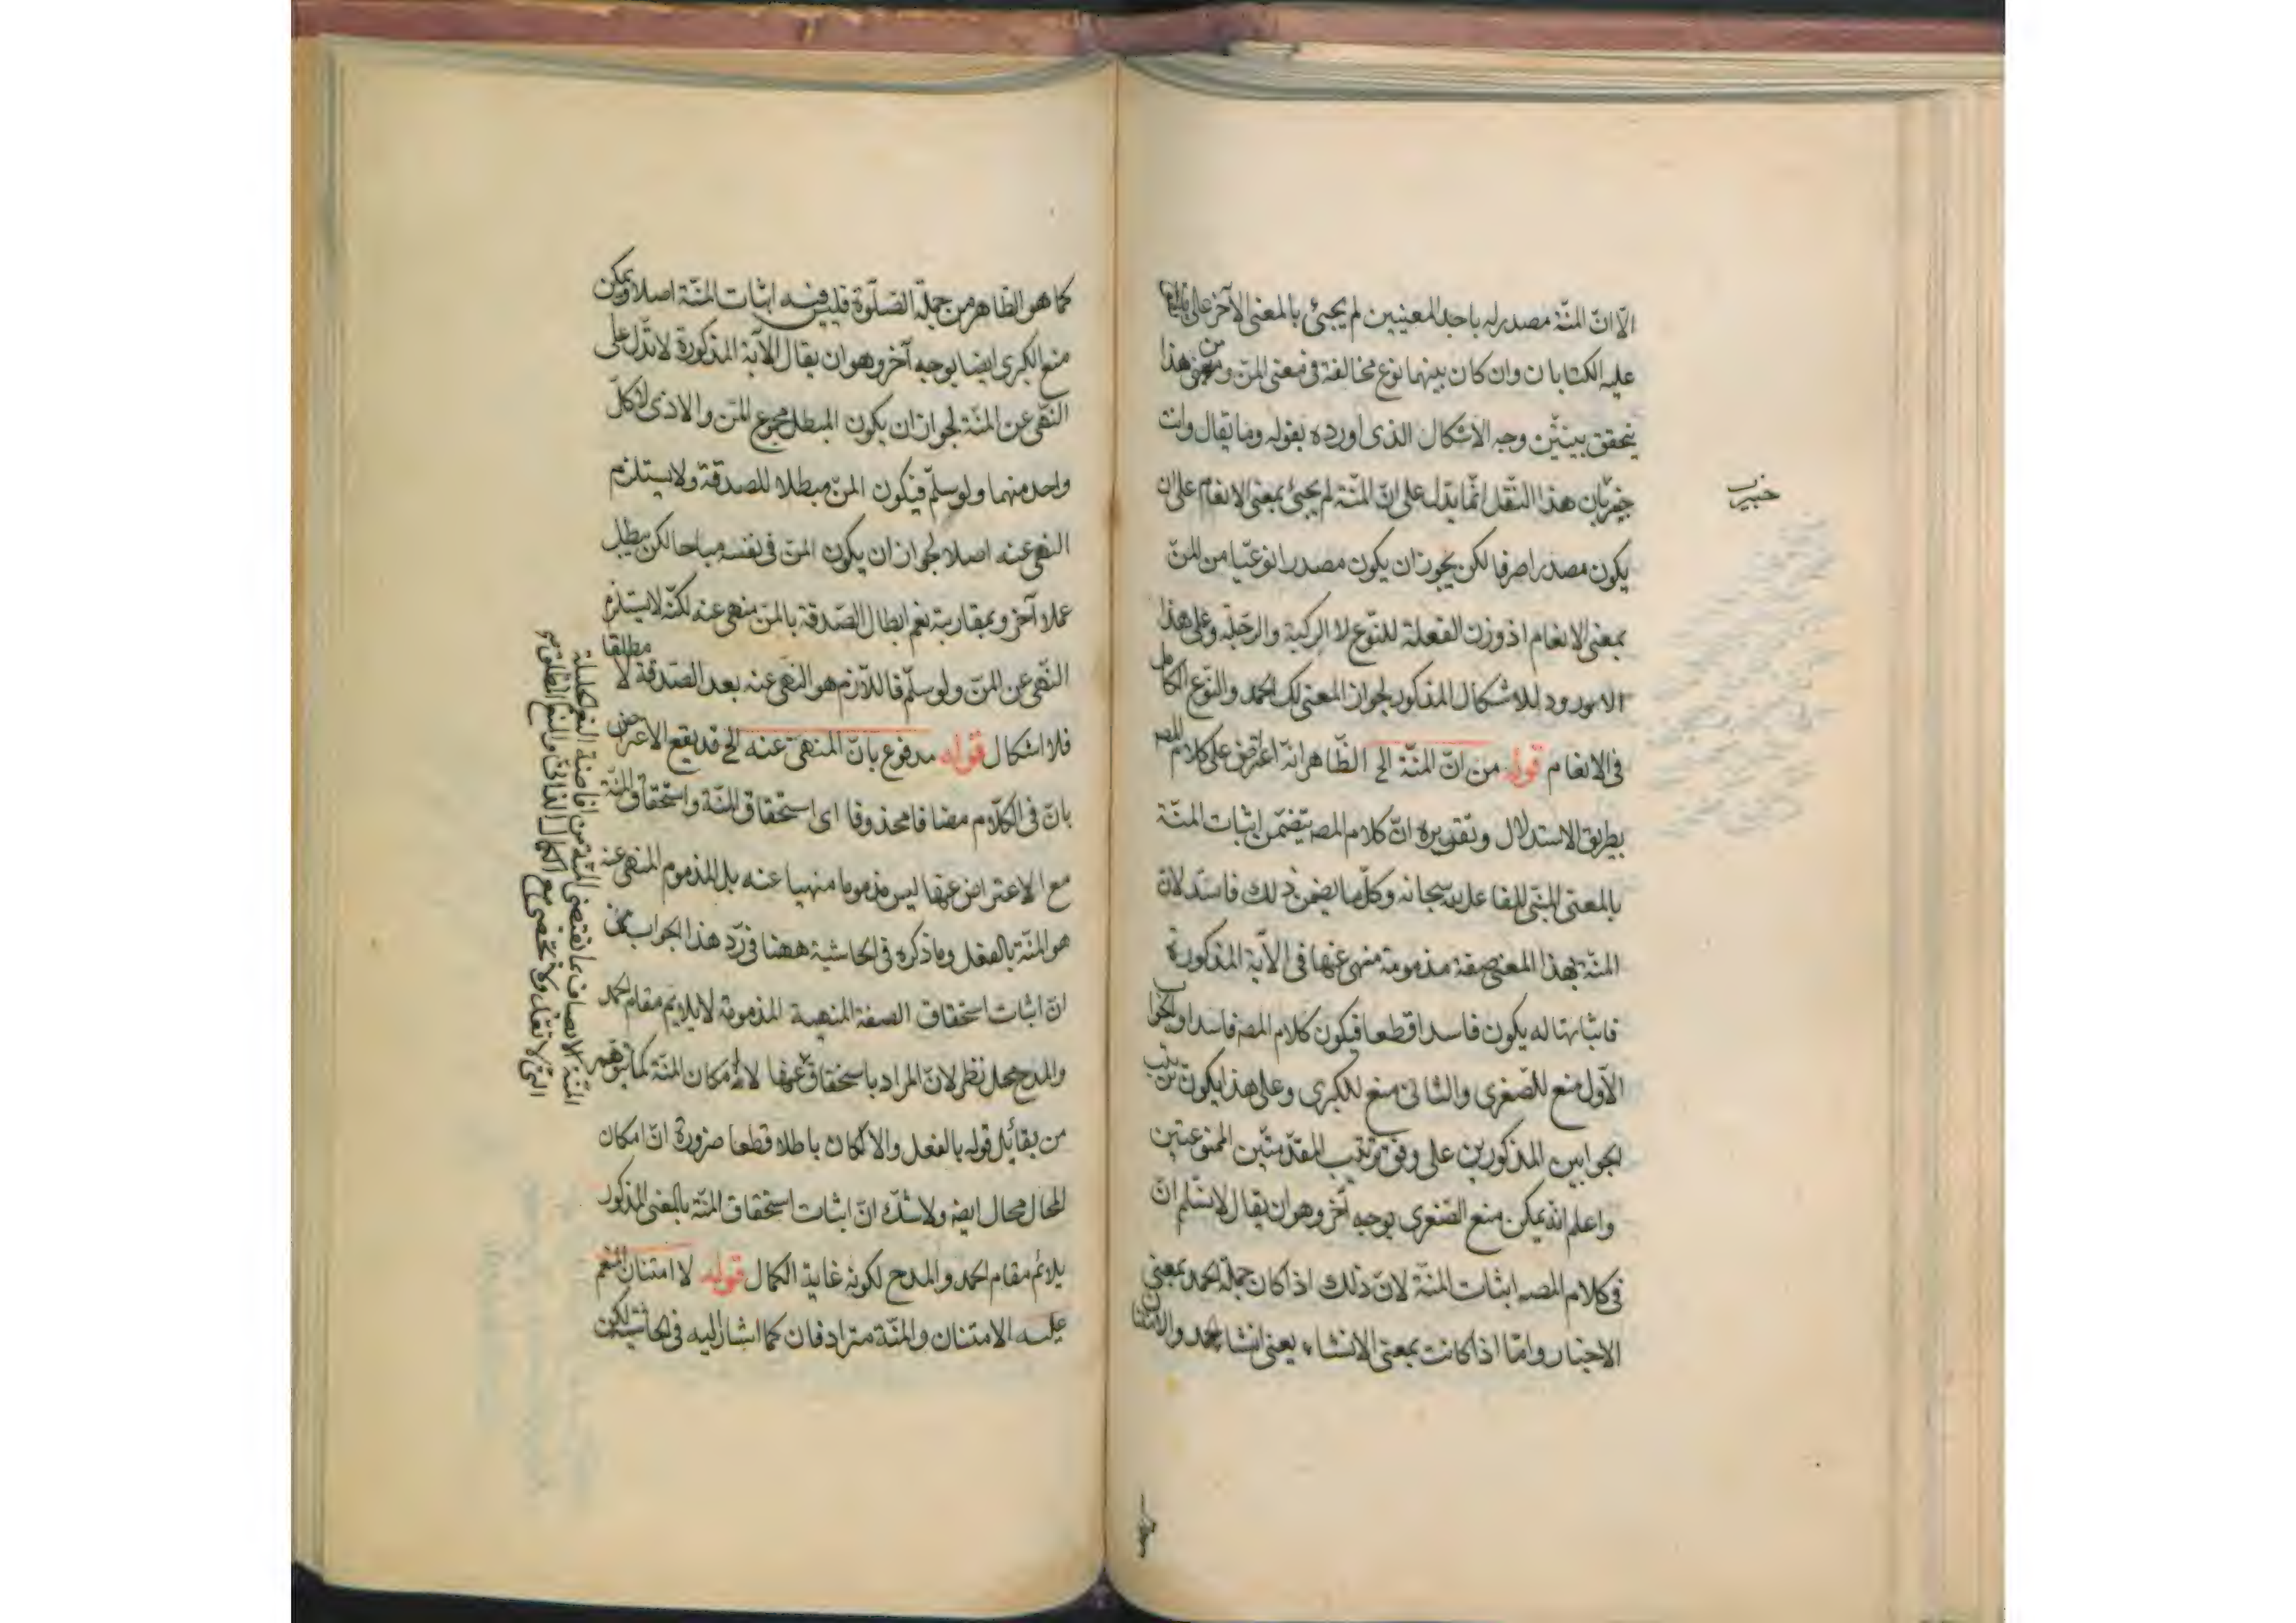 الّا انّ المنّة مصدر له باحد المعنيين لم يجئ بالمعنى الآخر على
عليه الكتابان وان كان بينهما نوع مخالفة فى معنى المنّ ومن هذا
يتحقق وجه الاشكال الذى اورده بقوله وما يقال وانت
خبير بان هذا النّقل انّما يدّل على انّ المنّة لم يجئ بمعنى الانعام على ان
يكون مصدرا صرفا لكن يجوز ان يكون مصدرا نوعيّا من المنّ
بمعنى الانعام اذ وزن الفعلة للنّوع لا الركبة والرحلة وعلى هذا
لا ورود للاشكال المذكور لجواز المعنى لك الحمد والنّوع الكامل
فى الانعام قوله من انّ المنّة الخ الظّاهر انّه اعتراض على كلام المصه
بطريق الاستدلال وتقريره انّ كلام المصه يتضمّن اثبات المنّة
بالمعنى سبحانه وكلّ ما يضمن ذلك فاسد لانّ
المنّة بهذا المعنى صفة مذمومة منهى عنها فى الآية المذكورة
فاثباتها له يكون فاسدا قطعا فيكون كلام المصه فاسدا والجواب
الاوّل منع للصّغرى والثانى منع للكبرى وعلى هذا يكون ترتيب
الجوابين المذكورين على وفق ترتيب المقدّمتين الممنوعتين
واعلم انّه يمكن منع الصّغرى بوجه آخر وهو ان يقال لا نسّلم انّ
فى كلام المصه اثبات المنّة لانّ ذلك اذا كان جملة الحمد بمعنى
الاخبار وامّا اذا كانت بمعنى الانشاء يعنى انشاء الحمد والامتنان
خبير
كما هو الظّاهر من جملة الصّلوة فليس فيه اثبات المنّة اصلا ويمكن
منع الكبرى ايضا بوجه آخر وهو ان يقال الآية المذكورة لا تدّل على
النّهى عن المنّة لجواز ان يكون المبطل مجموع المنّ والاذى لا كلّ
واحد منهما ولو سلّم فيكون المنّ مبطلا للصدقة ولا يستلزم
النهى عنه اصلا لجواز ان يكون المنّ فى نفسه مباحا لكن يبطل
عملا آخر وبمقاربة نعم ابطال الصّدقة بالمنّ منهى عنه لكنّه لا يستلزم
النّهى عن المنّ ولو سلّم فاللّازم هو النّهى عنه بعد الصّدقة لا مطلقا
فلا اشكال قوله مدفوع بانّ المنهىّ عنه الخ قد يقع الاعتراض
بانّ فى الكلام مضافا محذوفا اى استحقاق المنّة واستحقاق المنّة
مع الاعتراض عنها ليس مذموما منهيا عنه بل المذموم المنهى عنه
هو المنّة بالفعل وما ذكره فى الحاشية ههنا فى ردّ هذا الجواب من
انّ اثبات استحقاق الصفة المنهية المذمومة لا يلايم مقام الحمد
والمدح محل نظر لانّ المراد باستحقاق لا امكان المنّة كما توهّم
من يقابل قوله بالفعل والا لكان باطلا قطعا ضرورة انّ امكان
المحال محال ايضه ولا شكّ انّ اثبات استحقاق المنّة بالمعنى المذكور
يلائم مقام الحمد والمدح لكونه غاية الكمال قوله لا امتنان المنعم
عليه الامتنان والمنّة مترادفان كما اشار اليه فى الحاشية لكن